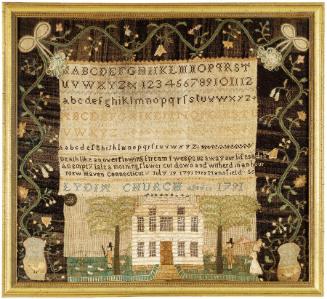 ABCDEFGHIKLMNOPQRST
UVWXYZ 123456789101112
abcdefghiklmnopqrſstuvwxyz
ABCDEFGHIKLMNOPQRST
UVWXYZ
abcdefghiklmnopqrſstuvwxyz
Death like an overflowing stream sweeps us away our life
a morning flower cut down and witherd in an hour
New Haven Connecticut July 19 1791
LYDIA CHURCH 1791